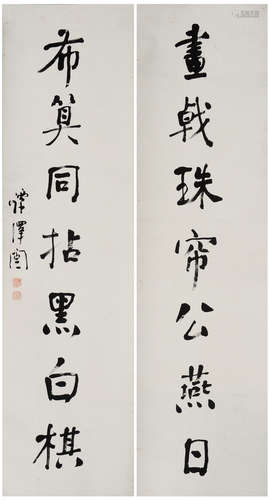 畫戟珠帘公燕日
布算同拈黑白棋
譚澤闓